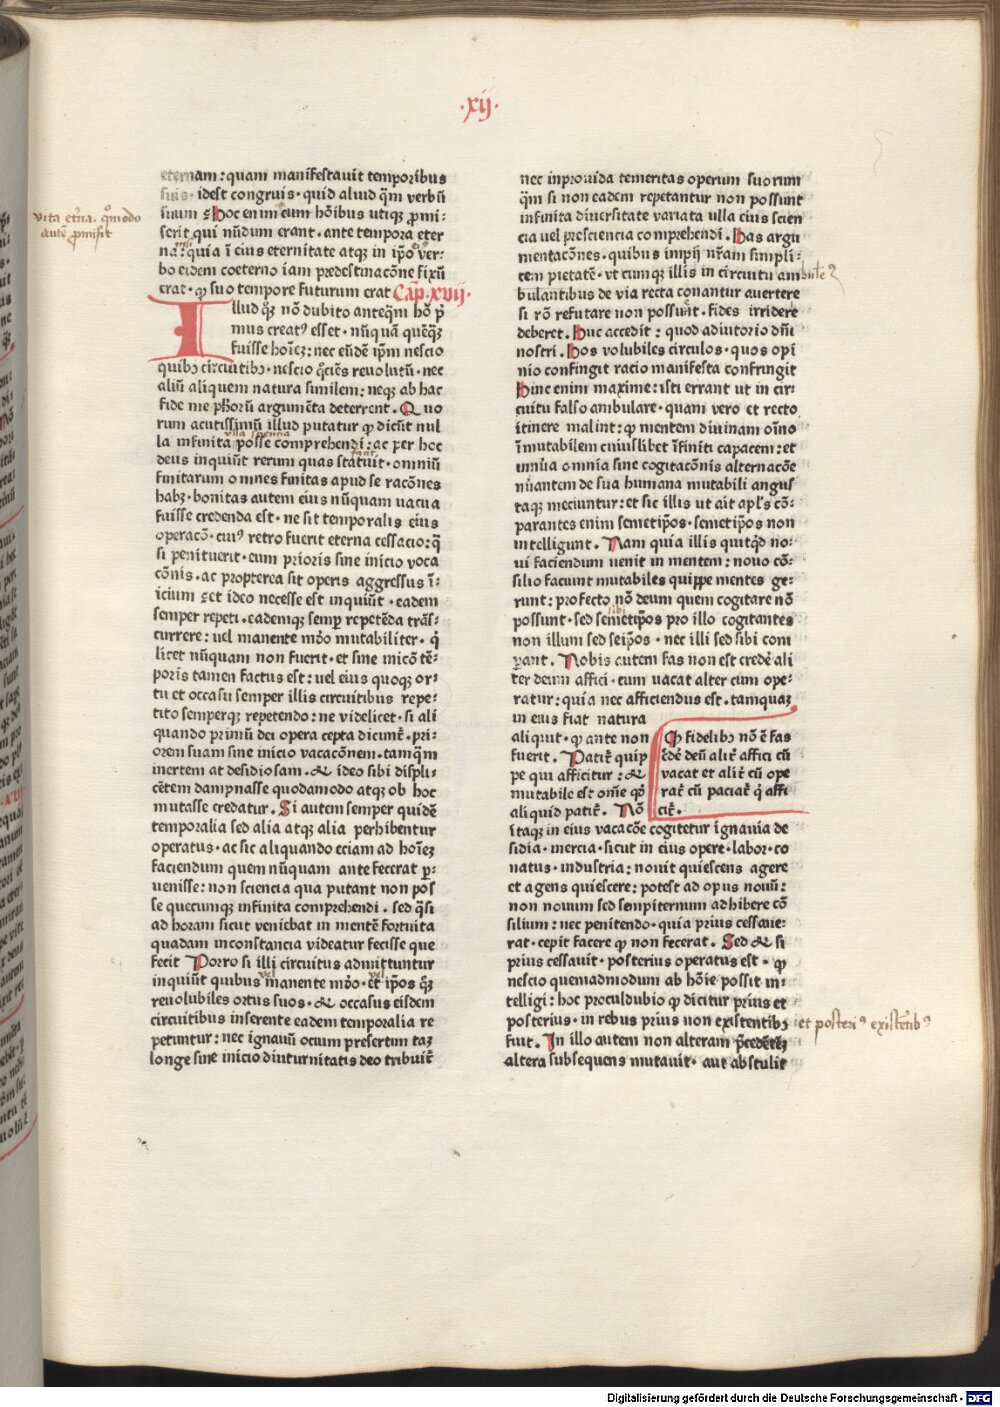 ·xij·
vita etn̄a. qͦmodo
autē ꝓmisit
eternam : quam manifestauit temporibus
suis · idest congruis · quid aliud qm̄ verbū
suum ⁊ Hoc enim cum hōibus utiqꝫ ꝓmi⸗
serit qui nūdum erant · ante tempora eter
na : quia ī eius eternitate atqꝫ in ip̄o ver⸗
bo eidem coeterno iam predestinacōne fixū
erat · ꝙ suo tempore futurum erat Cap̄.xvij·
Illud qꝫ nō dubito anteqm̄ hō pⁱ
mus creatꝰ esset · nūquā quēqꝫ
fuisse hoīeꝫ : nec eūdē ip̄m nescio
quibꝫ circuitibꝫ · nescio qͦciēs reuolutū · nec
aliū aliquem natura similem : neqꝫ ab hac
fide me ph̄orū argumēta deterrent . Quo
rum acutissimū illud putatur ꝙ dicūt nul
la infinita posse comprehendi : ac per hoc
deus inquiūt rerum quas statuit · omniū
finitarum omnes finitas apud se racōnes
habꝫ · bonitas autem eius nūquam uacua
fuisse credenda est · ne sit temporalis eius
operacō · cuiꝰ retro fuerit eterna cessacio : qͣ
si penituerit · eum prioris sine inicio voca
cōnis · ac propterea sit operis aggressus ī⸗
icium ⁊ et ideo necesse est inquiūt · eadem
semper repeti · eademqꝫ semꝑ repetēda trāſ⸗
currere : uel manente mūdo mutabiliter · qͥ
licet nūquam non fuerit · et sine inicō tē⸗
poris tamen factus est : uel eius quoqꝫ or⸗
tu et occasu semper illis circuitibus repe⸗
tito semperqꝫ repetendo : ne videlicet · si ali
quando primū dei opera cepta dicunt᷑ · pri⸗
orem suam sine inicio vacacōnem · tamqm̄
inertem at desidiosam · & ideo sibi displi⸗
cētem dampnasse quodamodo atqꝫ ob hoc
mutasse credatur . Si autem semper quidē
temporalia sed alia atqꝫ alia perhibentur
operatus · ac sic aliquando eciam ad hoīeꝫ
faciendum quem nūquam ante fecerat ꝑ⸗
uenisse : non sciencia qua putant non pos
se quecumqꝫ infinita comprehendi . sed qͣsi
ad horam sicut veniebat in mentē fortuita
quadam inconstancia videatur fecisse que
fecit Porro si illi circuitus admittuntur
inquiūt quibus manente mūdo · et ip̄os qꝫ
reuolubiles ortus suos · & occasus eisdem
circuitibus inserente eadem temporalia re
petuntur : nec ignauū ocium presertim taꝫ
longe sine inicio diuturnitatis deo tribuit᷑
nec inprouida temeritas operum suorum
qm̄ si non eadem repetantur non possunt
infinita diuersitate variata ulla eius scien
cia uel presciencia comprehendi . Has argu
mentacōnes · quibus impij nr̄am simpli⸗
cem pietatē · vt cumqꝫ illis in circuitu am
bulantibus de via recta conantur auertere
si rō refutare non possūt · fides irridere
deberet . Huc accedit : quod adiutorio dn̄i
nostri . Hos volubiles circulos · quos opi
nio confingit racio manifesta confringit
Hinc enim maxime : isti errant ut in cir⸗
cuitu falso ambulare · quam vero et recto
itinere malint : ꝙ mentem diuinam oīno
īmutabilem cuiuslibet īfiniti capacem : et
innūia omnia sine cogitacōnis alternacōe
nūantem de sua humana mutabili angus
taqꝫ meciuntur : et sic illis ut ait apl's cō⸗
parantes enim semetip̄os · semetip̄os non
intelligunt . Nam quia illis quitqͥd no⸗
ui faciendum uenit in mentem : nouo cō⸗
silio faciunt mutabiles quippe mentes ge⸗
runt : profecto nō deum quem cogitare nō
possunt · sed semetip̄os pro illo cogitantes
non illum sed seip̄os · nec illi sed sibi com
ꝑant . Nobis autem fas non est crede᷑ ali
ter deum affici · cum uacat alter cum ope⸗
ratur : quia nec afficiendus est · tamquaꝫ
in eius fiat natura
aliquit · ꝙ ante non
fuerit . Patit᷑ quip
pe qui afficitur : &
mutabile est om̄e qꝫ
aliquid patit᷑ . Nō
Ꝙ fidelibꝫ nō ē fas
c̄dē deū alit᷑ affici cū
vacat et alit᷑ cū ope
rat᷑ cū paciat᷑ qͥ affi
cit᷑ .
itaqꝫ in eius vacacōe cogitetur ignauia de
sidia · inercia · sicut in eius opere · labor · co
natus · industria : nouit quiescens agere
et agens quiescere : potest ad opus nouū :
non nouum sed sempiternum adhibere cō
silium : nec penitendo · quia prius cessaue⸗
rat · cepit facere ꝙ non fecerat . Sed & si
prius cessauit · posterius operatus est · ꝙ
nescio quemadmodum ab hōie possit in⸗
telligi : hoc proculdubio ꝙ dicitur prius et
posterius · in rebus prius non existentibꝫ
fuit . In illo autem non alteram p̄cedenteꝫ
altera subsequens mutauit · aut abstulit
et posteriꝰ existētibꝰ
Digitalisierung gefördert durch die Deutsche Forschungsgemeinschaft - DFG